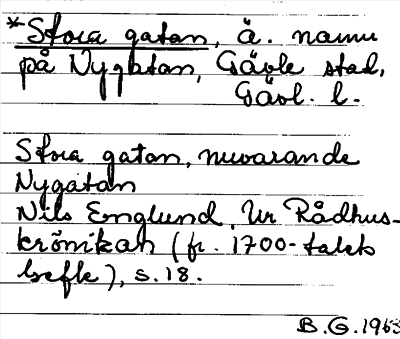 *Stora gatan, ä. namn
på Nygatan, Gävle stad,
Gävl. l.
Stora gatan, nuvarande
Nygatan
Nils Englund, Ur Rådhus-
krönikan (fr. 1700-talets
Gefle), s. 18.
B.G. 1963